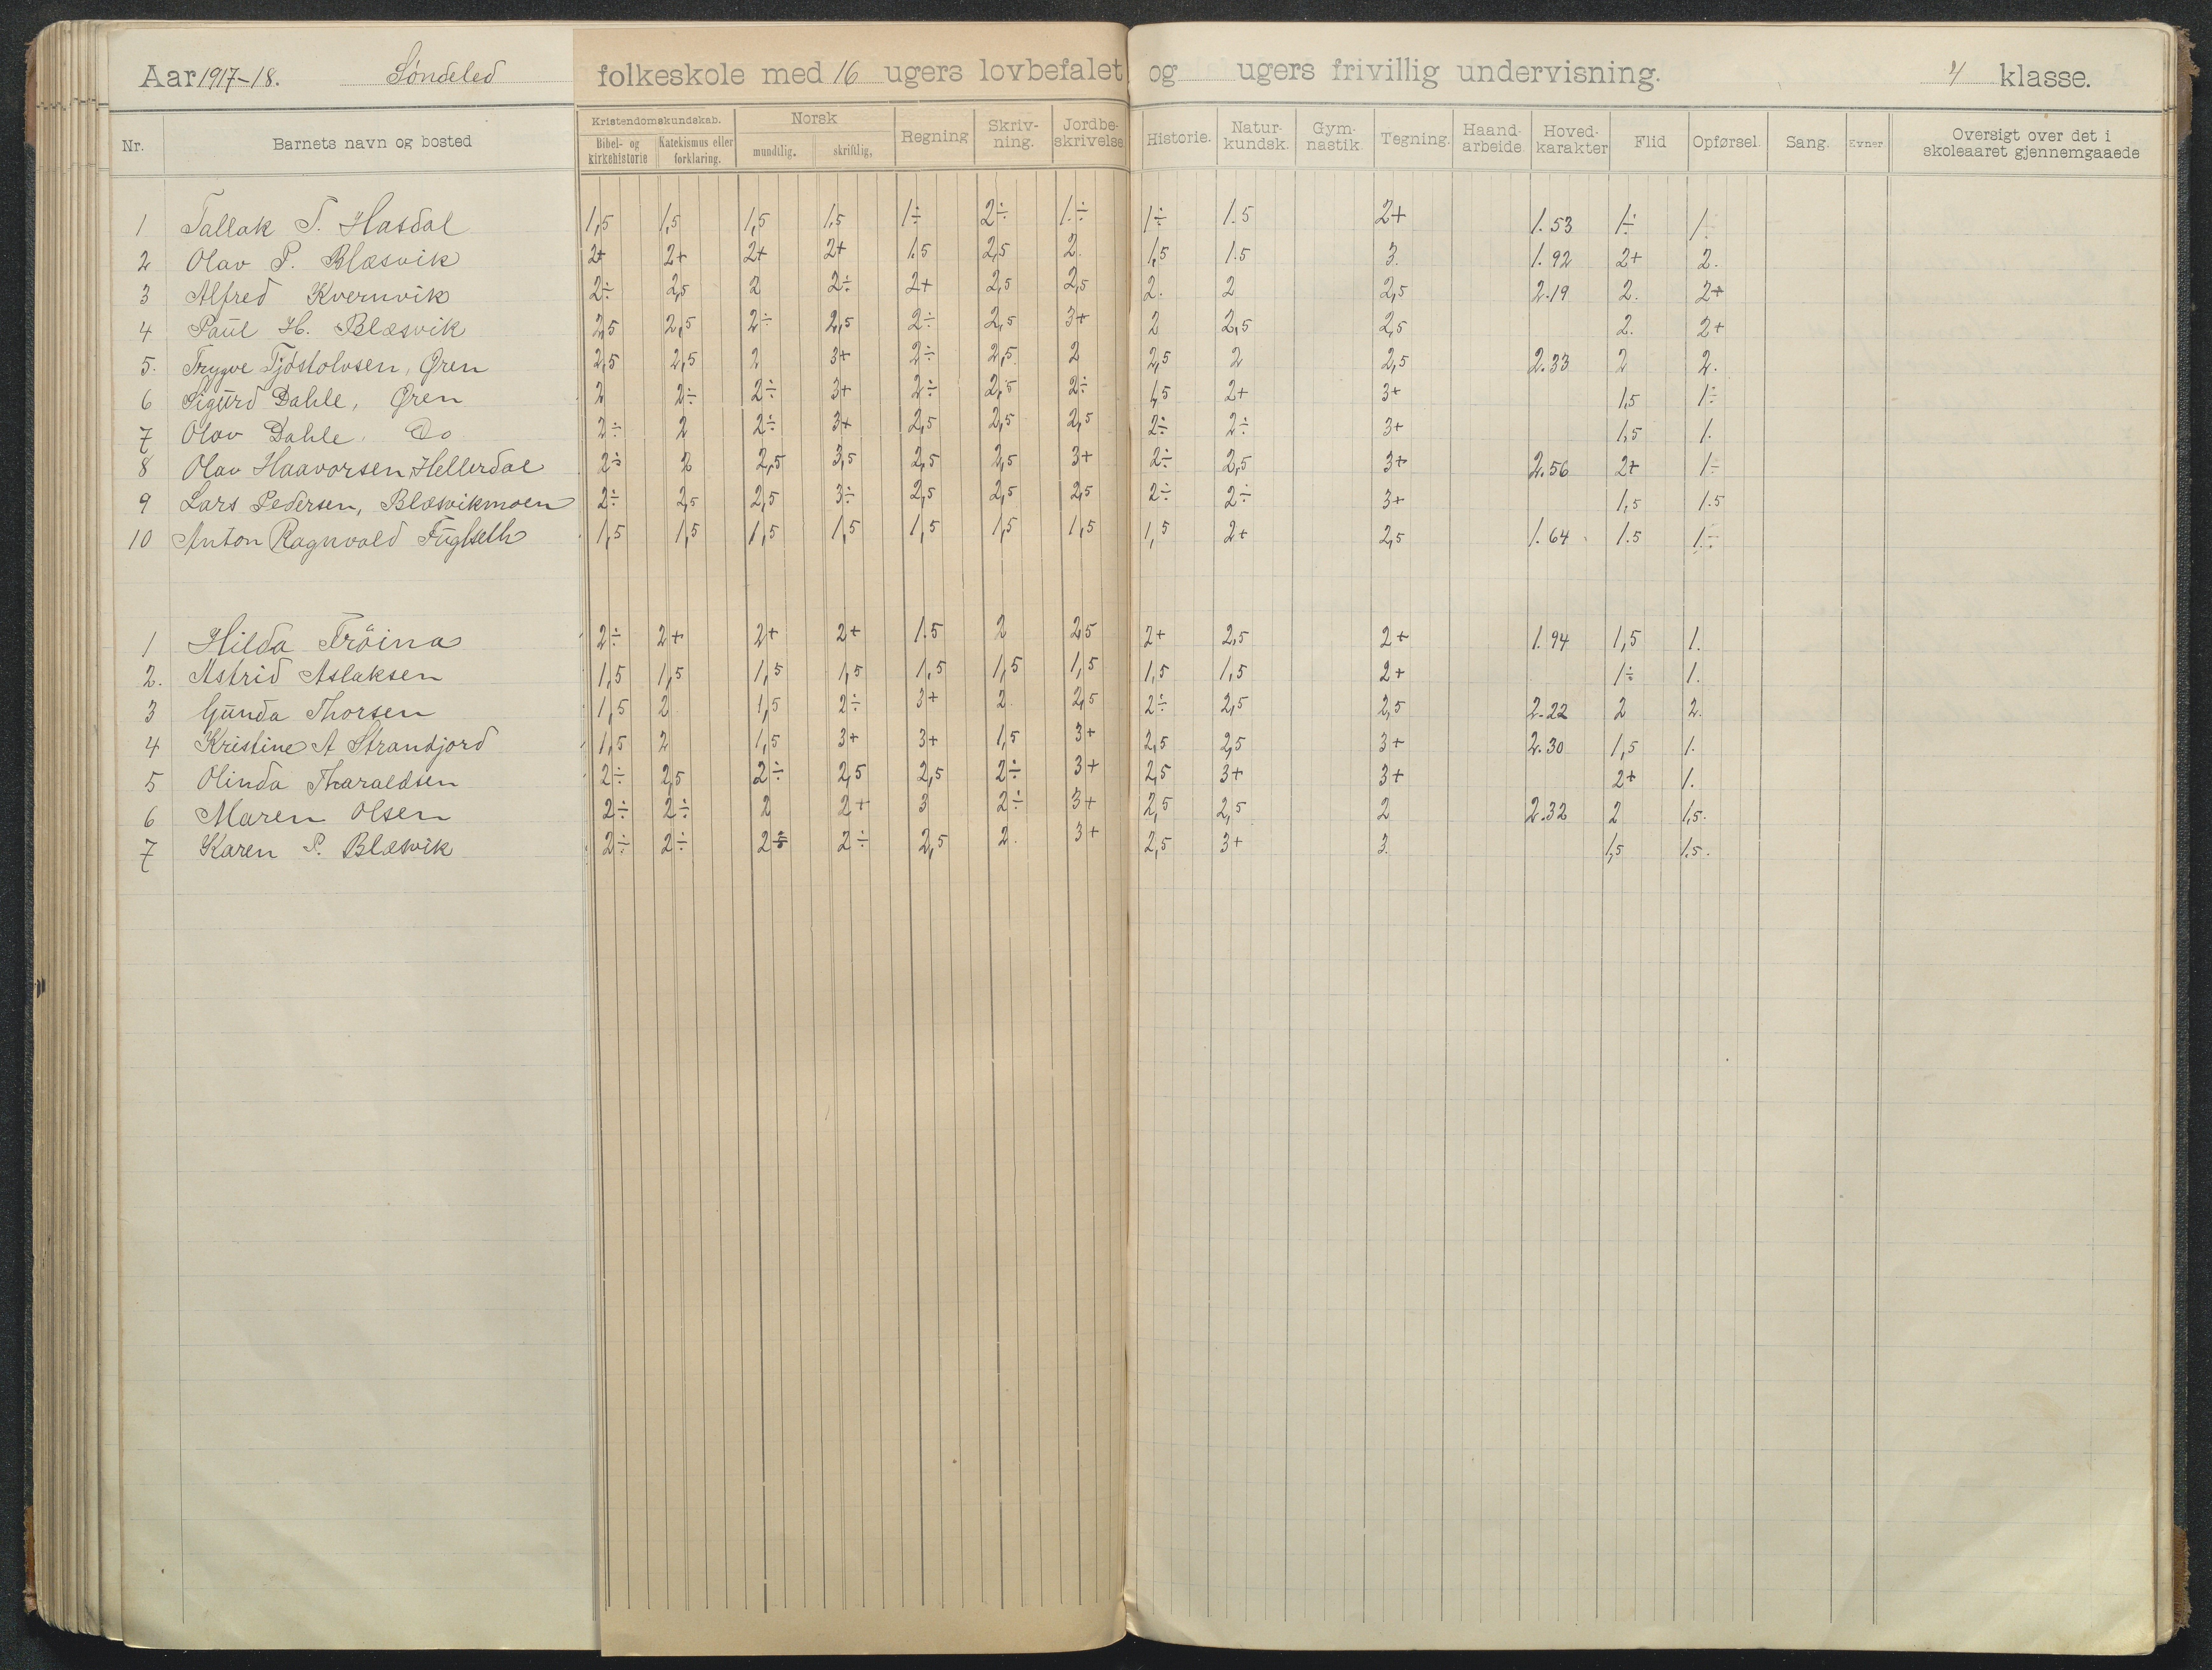 Aar 1917-18. Søndeled folkeskole med 16 ugers lovbefalet og ugers frivillig undervisning. 4 klasse.
Nr. Barnets navn og bosted Kristendomskundskab. Bibel- og kirkehistorie Katekismus eller forklaring. Norsk mundtlig. skriftlig. Regning Skriv-ning. Jordbe-skrivelse Historie. Natur-kundsk. Gym-nastik. Tegning. Haand-arbeide Hoved-karakter Flid Opførsel. Sang. Evner Oversigt over det i skoleaaret gjennemgaaede
1 Tallak T. Hasdal 1,5 1,5 1,5 1,5 1÷ 2÷ 1.÷ 1÷ 1.5 2+ 1.53 1÷ 1.
2 Olav P. Blæsvik 2+ 2+ 2+ 2+ 1.5 2,5 2. 1,5 1.5 3. 1.92 2+ 2.
3 Alfred Kvernvik 2÷ 2,5 2 2÷ 2+ 2,5 2,5 2. 2 2,5 2.19 2. 2+
4 Paul H. Blæsvik 2,5 2,5 2÷ 2,5 2÷ 2,5 3+ 2 2,5 2,5 2. 2+
5. Trygve Tjöstolvsen, Øren 2,5 2,5 2 3+ 2÷ 2,5 2 2,5 2 2,5 2.33 2 2.
6 Sigurd Dahle, Øren 2 2÷ 2÷ 3+ 2÷ 2,5 2÷ 1,5 2+ 3+ 1,5 1÷
7 Olav Dahle. Do 2÷ 2 2÷ 3+ 2,5 2,5 2,5 2÷ 2÷ 3+ 1,5 1.
8 Olav Haavorsen, Hellerdal 2÷ 2 2,5 3,5 2,5 2,5 3+ 2÷ 2,5 3+ 2.56 2+ 1÷
9 Lars Pedersen, Blæsvikmoen 2÷ 2,5 2,5 3÷ 2,5 2,5 2,5 2÷ 2÷ 3+ 1,5 1.5
10 Anton Ragnvald Fuglseth 1,5 1,5 1,5 1,5 1,5 1,5 1,5 1,5 2+ 2,5 1.64 1.5 1.÷
1 Hilda Tröina 2÷ 2+ 2+ 2+ 1.5 2 2,5 2+ 2,5 2+ 1.94 1,5 1.
2. Astrid Aslaksen 1,5 1,5 1,5 1,5 1,5 1,5 1,5 1,5 1,5 2+ 1÷ 1.
3 Gunda Thorsen 1,5 2 1,5 2÷ 3+ 2. 2,5 2÷ 2,5 2,5 2.22 2 2.
4 Kristine A Strandjord 1,5 2 1,5 3+ 3+ 1,5 3+ 2,5 2,5 3+ 2.30 1,5 1.
5 Olinda Tharaldsen 2÷ 2,5 2÷ 2,5 2,5 2÷ 3+ 2,5 3+ 3+ 2+ 1.
6 Maren Olsen 2÷ 2÷ 2 2+ 3 2÷ 3+ 2,5 2,5 2 2.32 2 1,5.
7 Karen P. Blæsvik 2÷ 2÷ 2÷ 2÷ 2,5 2. 3+ 2,5 3+ 3. 1,5 1.5.